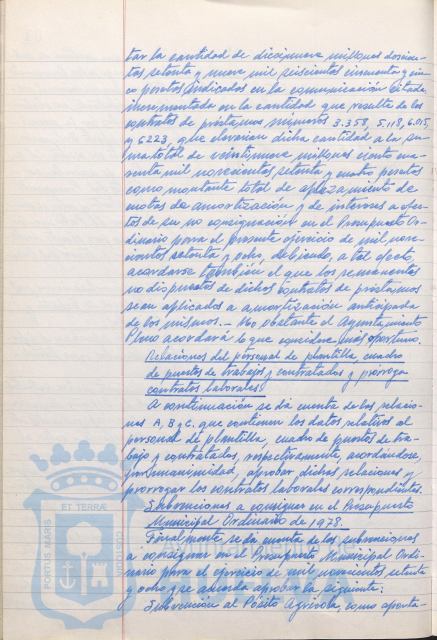 tar la cantidad de diecinueve millones doscien-
tas setenta y nueve mil seiscientas cincuenta y cin-
co pesetas indicadas en la comunicación citada,
incrementada en la cantidad que resulte de los
contratos de préstamos números 3.358, 5.118, 6.015,
y 6223, que elevarían dicha cantidad a la su-
ma total de veintinueve millones ciento cua-
renta mil novecientas setenta y cuatro pesetas
como montante total de aplazamiento de
cuotas de amortización y de intereses a efec-
tos de su no consignación en el Presupuesto Or-
dinario para el presente ejercicio de mil nove-
cientos setenta y ocho, debiendo, a tal efecto,
acordarse también el que los remanentes
no dispuestos de dichos contratos de préstamos
sean aplicados a amortización anticipada
de los mismos.- No obstante el Ayuntamiento
Pleno acordará lo que considere más oportuno.
Relaciones del personal de plantilla, cuadro
de puestos de trabajo y contratados y prórroga
contratos laborales.
A continuación se da cuenta de las relacio-
nes A, B y C, que contienen los datos relativos al
personal de plantilla, cuadro de puestos de tra-
bajo y contratados, respectivamente, acordándose,
por unanimidad, aprobar dichas relaciones y
prorrogar los contratos laborales correspondientes.
Subvenciones a consignar en el Presupuesto
Municipal Ordinario de 1978.
Finalmente se da cuenta de las subvenciones
a consignar en el Presupuesto Municipal Ordi-
nario para el ejercicio de mil novecientos setenta
y ocho que se acuerda aprobar la siguiente:
Subvención al Pósito Agrícola, como aporta-
ET TERRAE
PORTUS MARIS
CUSTODIA